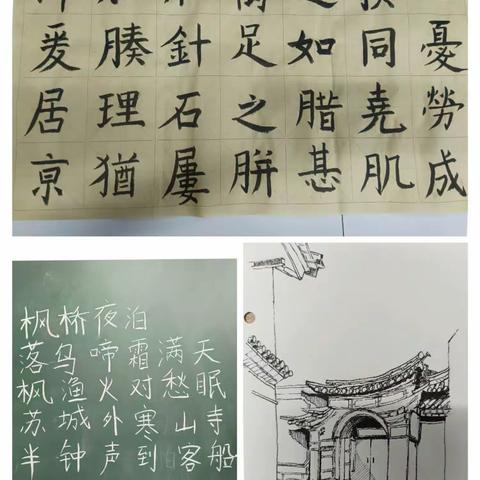 憂勞成
同堯肌
如腊甚
足之胼
針石屢
腠理猶
爰居京
枫桥夜泊
落乌啼霜满天
枫渔火对愁眠
苏城外寒山寺
半钟声到客船